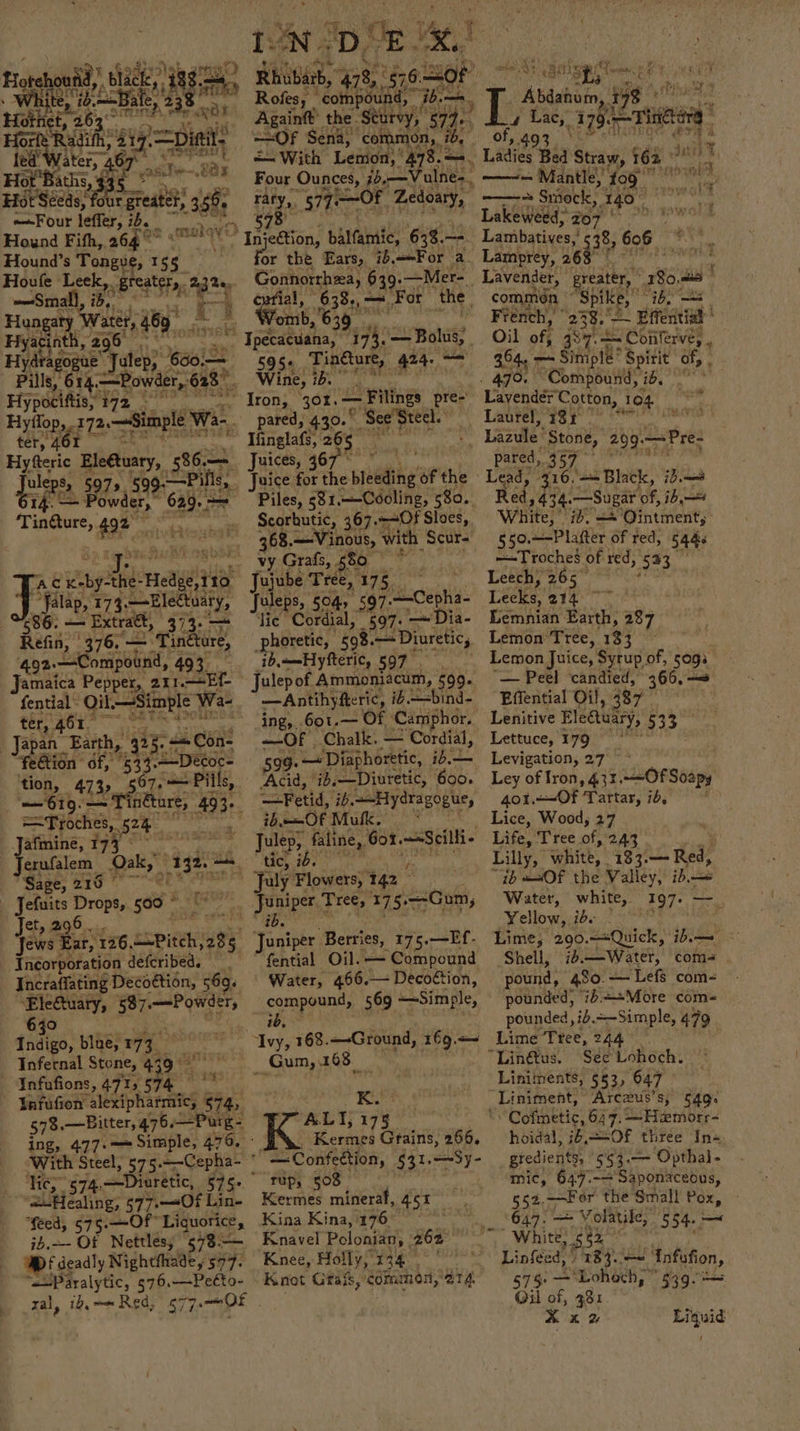 INDEX.
Horehound, black, 188.—
White, ib.—Bale, 238
Hornet, 263
Horse Radish, 217.—Distil-
led Water, 467
Hot Baths, 335
Hot Seeds, four greater, 356.
—Four lesser, ib.
Hound Fish, 264
Hound's Tongue, 155
House Leek, greater, 232.
—Small, ib.
Hungary Water, 469
Hyacinth, 296
Hydragogue Julep, 600.—
Pills, 614.—Powder, 628
Hypocistis, 172
Hyssop, 172.—Simple Wa-
ter, 461
Hysteric Electuary, 586.—
Juleps, 597, 599.—Pills,
614.—Powder, 629.—
Tincture, 492
J.
JACK-by-the-Hedge, 110
Jalap, 173.—Electuary,
586.—Extract, 373.—
Resin, 376.—Tincture,
492.—Compound, 493
Jamaica Pepper, 211.—Ef-
sential Oil.—Simple Wa-
ter, 461
Japan Earth, 325.—Con-
fection of, 533.—Decoc-
tion, 473, 567.—Pills,
—619.—Tincture, 493.
—Troches, 524
Jasmine, 173
Jerusalem Oak, 132.—
Sage, 216
Jesuits Drops, 500
Jet, 296
Jews Ear, 126.—Pitch, 285
Incorporation described.
Incrassating Decoction, 569.
Electuary, 587.—Powder,
630
Indigo, blue, 173
Infernal Stone, 439
Infusions, 471, 574
Infusion alexipharmic, 574,
578.—Bitter, 476.—Purg-
ing, 477.—Simple, 476.
With Steel, 575.—Cepha-
lic, 574.—Diuretic, 575.
—Healing, 577.—Of Lin-
seed, 575.—Of Liquorice,
ib.—Of Nettles, 578.—
Of deadly Nightshade, 577.
—Paralytic, 576.—Pecto-
ral, ib.—Red, 577.—Of
Rhubarb, 478, 576.—Of
Roses, compound, ib.—
Against the Scurvy, 577.
—Of Sena, common, ib.
—With Lemon, 478.—
Four Ounces, ib.—Vulne-
rary, 577.—Of Zedoary,
578
Injection, balsamic, 638.—
for the Ears, ib.—For a
Gonnorrhæa, 639.—Mer-
curial, 638.—For the
Womb, 639
Ipecacuana, 173.—Bolus,
595. Tincture, 424.—
Wine, ib.
Iron, 301.—Filings pre-
pared, 430. See Steel.
Isinglass, 265
Juices, 367
Juice for the bleeding of the
Piles, 581.—Cooling, 580.
Scorbutic, 367.—Of Sloes,
368.—Vinous, with Scur-
vy Grass, 580
Jujube Tree, 175
Juleps, 504, 597.—Cepha-
lic Cordial, 597.—Dia-
phoretic, 598.—Diuretic,
ib.—Hysteric, 597
Julep of Ammoniacum, 599.
—Antihysteric, ib.—bind-
ing, 601.—Of Camphor.
—Of Chalk.—Cordial,
599.—Diaphoretic, ib.—
Acid, ib.—Diuretic, 600.
—Fetid, ib.—Hydragogue,
ib.—Of Musk.
Julep, saline, 601.—Scilli-
tic, ib.
July Flowers, 142
Juniper Tree, 175.—Gum,
ib.
Juniper Berries, 175.—Ef-
sential Oil.—Compound
Water, 466.—Decoction,
compound, 569—Simple,
ib.
Ivy, 168.—Ground, 169.—
Gum, 168
K.
KALI, 175
Kermes Grains, 266.
—Confection, 531.—Sy-
rup, 508
Kermes mineral, 451
Kina Kina, 176
Knavel Polonian, 262
Knee, Holly, 134
Knot Grass, common, 214
L.
Labdanum, 178
Lac, 179.—Tincture
of, 493
Ladies Bed Straw, 162
—— Mantle, 109
—— Smock, 140
Lakeweed, 207
Lambatives, 538, 606
Lamprey, 268
Lavender, greater, 180.—
common Spike, ib.—
French, 238.—Essential
Oil of, 387.—Conserves,
364.—Simple Spirit of,
470. Compound, ib.
Lavender Cotton, 104
Laurel, 181
Lazule Stone, 299.—Pre-
pared, 357
Lead, 316.—Black, ib.—
Red, 434.—Sugar of, ib.—
White, ib.—Ointment,
550.—Plaster of red, 544.
—Troches of red, 523
Leech, 265
Leeks, 214
Lemnian Earth, 287
Lemon Tree, 183
Lemon Juice, Syrup of, 509.
—Peel candied, 366.—
Essential Oil, 387
Lenitive Electuary, 533
Lettuce, 179
Levigation, 27
Ley of Iron, 431.—Of Soapy
401.—Of Tartar, ib.
Lice, Wood, 27
Life, Tree of, 243
Lilly, white, 183.—Red,
ib.—Of the Valley, ib.—
Water, white, 197.—
Yellow, ib.
Lime, 290.—Quick, ib.—
Shell, ib.—Water, com-
pound, 480.—Less com-
pounded, ib.—More com-
pounded, ib.—Simple, 479
Lime Tree, 244
Linctus. See Lohoch.
Liniments, 553, 647
Liniment, Arcæus's, 549.
Cosmetic, 647.—Hæmorr-
hoidal, ib.—Of three In-
gredients, 553.—Opthal-
mic, 647.—Saponaceous,
552.—For the Small Pox,
647.—Volatile, 554.—
White, 552
Linseed, 183.—Infusion,
575.—Lohoch, 539.—
Oil of, 381
X x 2
Liquid